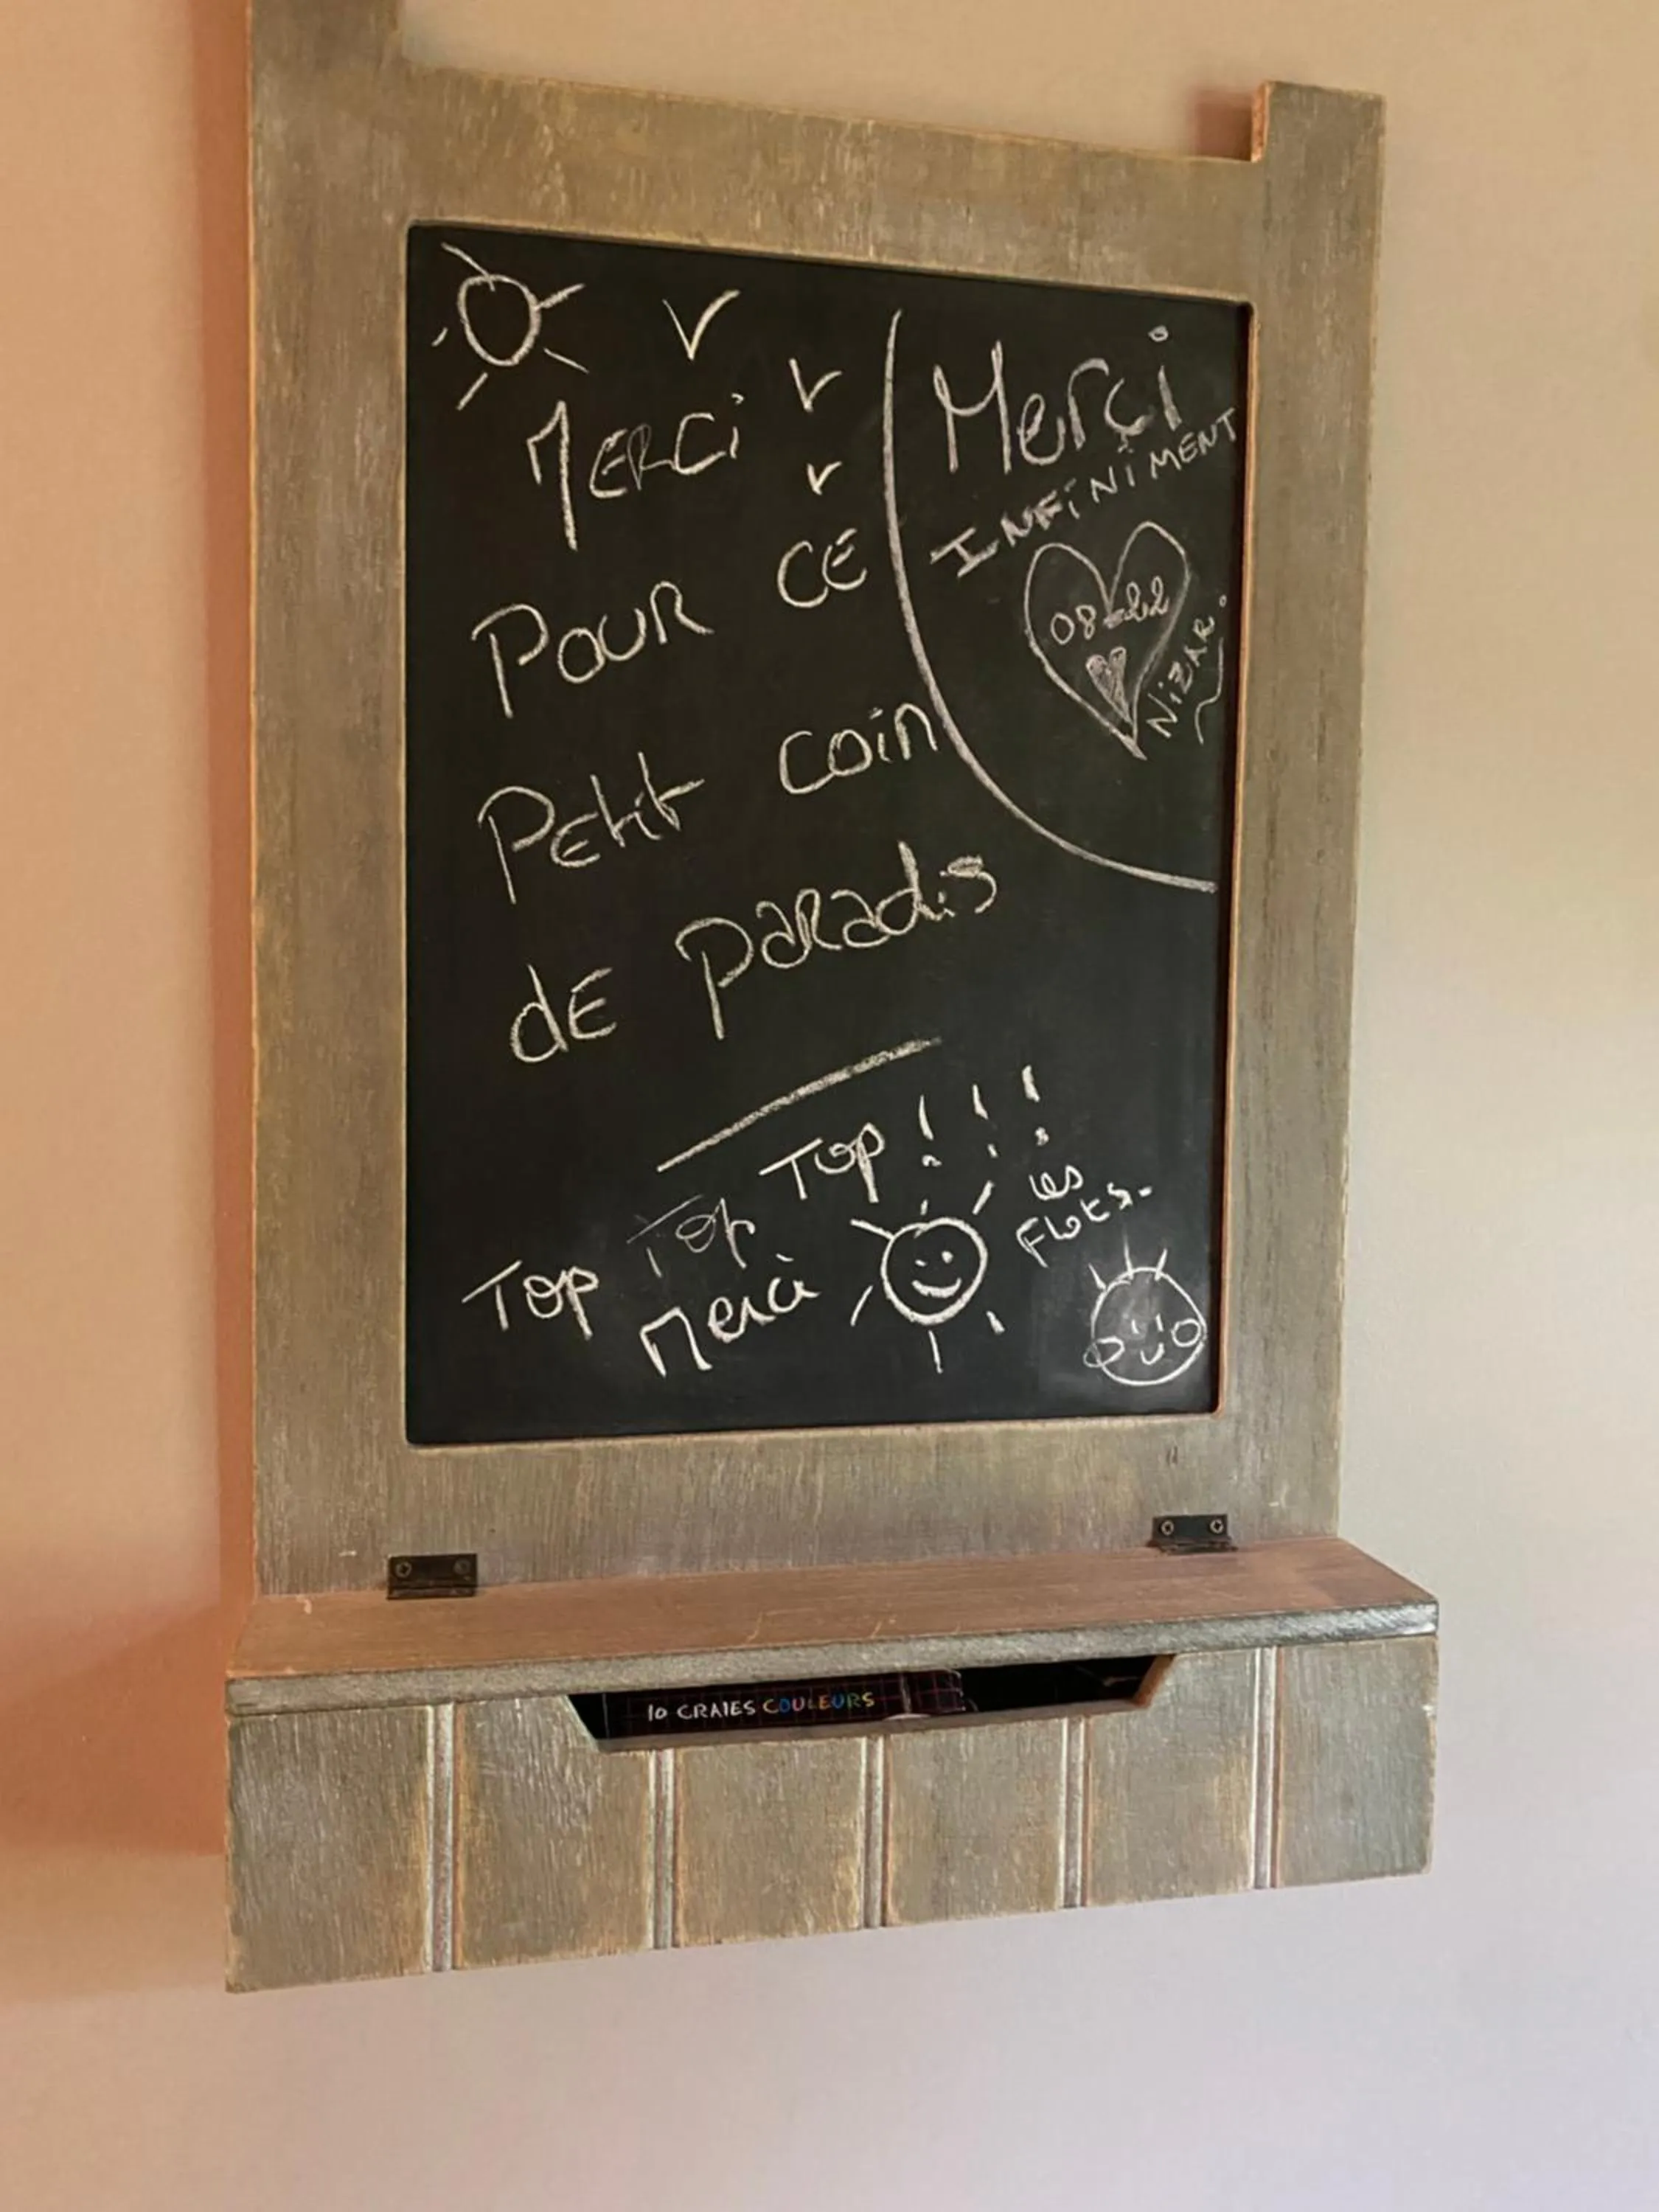 MERCi
POUR CE
PEtit coin
dE PaRadis
Merçi
INFiNiMENT
08-22
NiZAR
Top Top Top !!!
Merci
Les
Flots.
10 CRAIES COULEURS